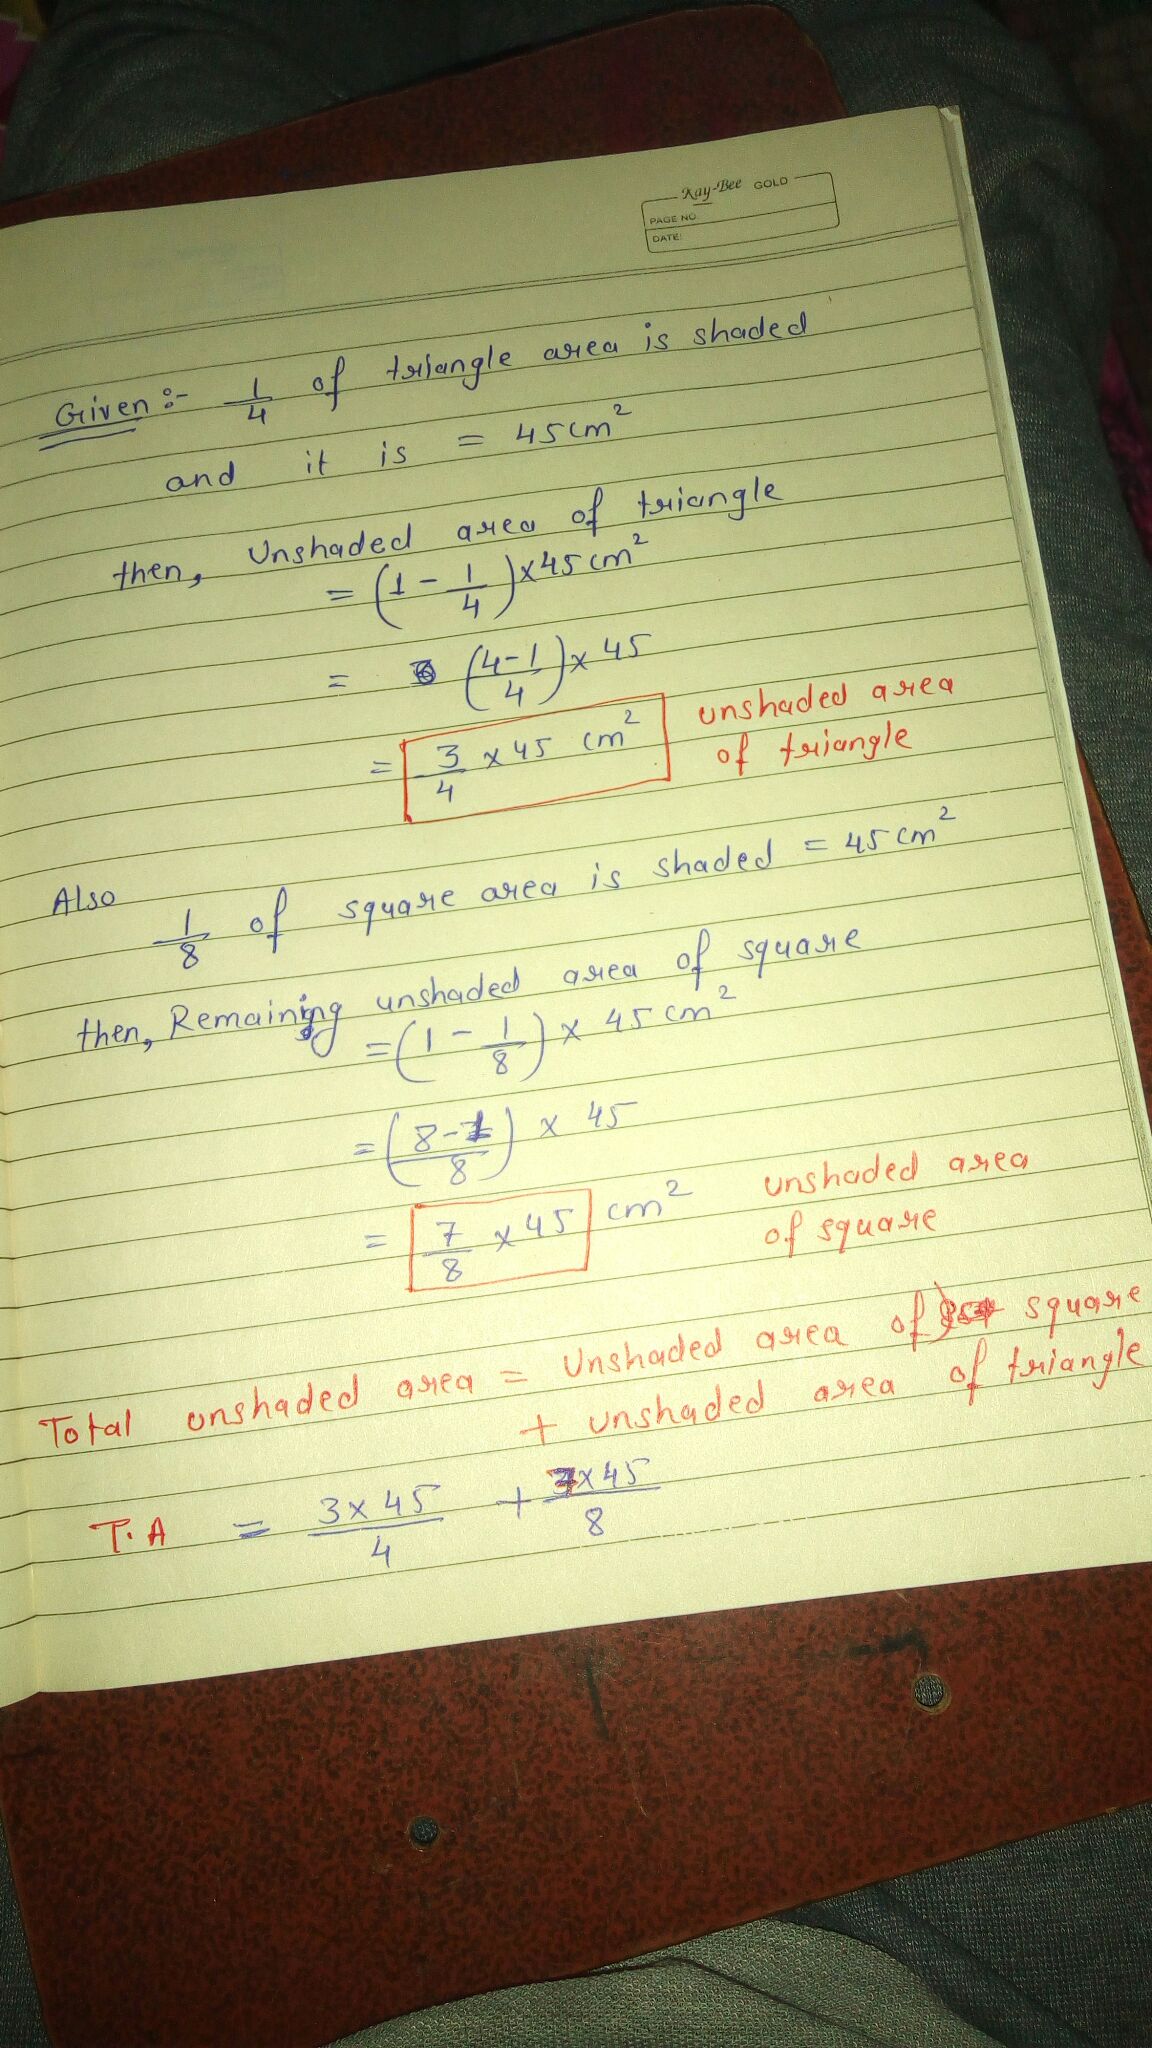 Kay-Bee GOLD
PAGE NO.
DATE:
Given :- 1/4 of triangle area is shaded
and it is = 45cm²
then, Unshaded area of triangle
= (1 - 1/4) x 45 cm²
= (4-1/4) x 45
= 3/4 x 45 cm² unshaded area
of triangle
Also 1/8 of square area is shaded = 45 cm²
then, Remaining unshaded area of square
= (1 - 1/8) x 45 cm²
= (8-1/8) x 45
= 7/8 x 45 cm² unshaded area
of square
Total unshaded area = Unshaded area of square
+ unshaded area of triangle
T.A = 3x45/4 + 7x45/8